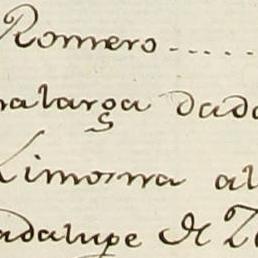 Romero.....
nalarga dado
Limosna al
adalupe de